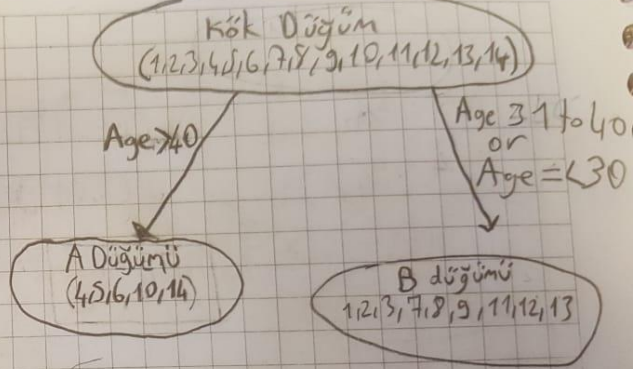 Kök Düğüm
(1,2,3,4,5,6,7,8,9,10,11,12,13,14)
Age>40
Age 31 to 40
or
Age =<30
A Düğümü
(4,5,6,10,14)
B düğümü
1,2,3,7,8,9,11,12,13